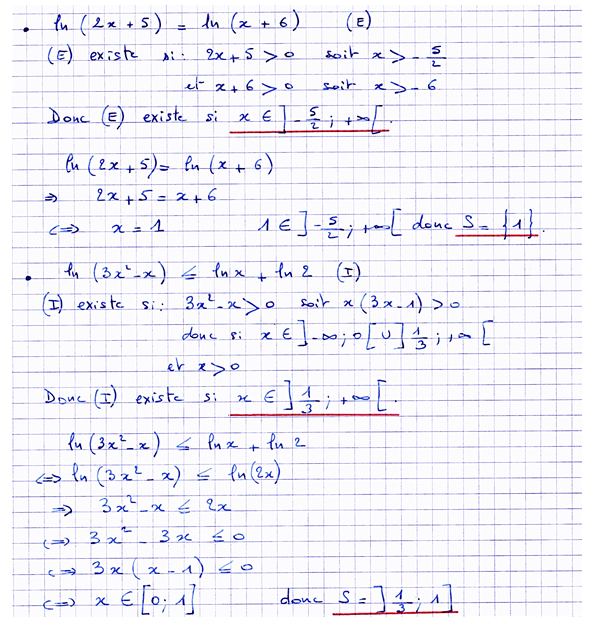 • ln (2x + 5) = ln (x + 6) (E)
(E) existe si : 2x + 5 > 0 soit x > - 5/2
et x + 6 > 0 soit x > - 6
Donc (E) existe si x ∈ ] - 5/2 ; +∞ [.
ln (2x + 5) = ln (x + 6)
⇒ 2x + 5 = x + 6
⇔ x = 1 1 ∈ ] - 5/2 ; +∞ [ donc S = {1}.
• ln (3x² - x) ≤ ln x + ln 2 (I)
(I) existe si : 3x² - x > 0 soit x (3x - 1) > 0
donc si x ∈ ] -∞ ; 0 [ U ] 1/3 ; +∞ [
et x > 0
Donc (I) existe si x ∈ ] 1/3 ; +∞ [.
ln (3x² - x) ≤ ln x + ln 2
⇔ ln (3x² - x) ≤ ln (2x)
⇒ 3x² - x ≤ 2x
⇔ 3x² - 3x ≤ 0
⇔ 3x (x - 1) ≤ 0
⇔ x ∈ [0 ; 1] donc S = ] 1/3 ; 1 ]